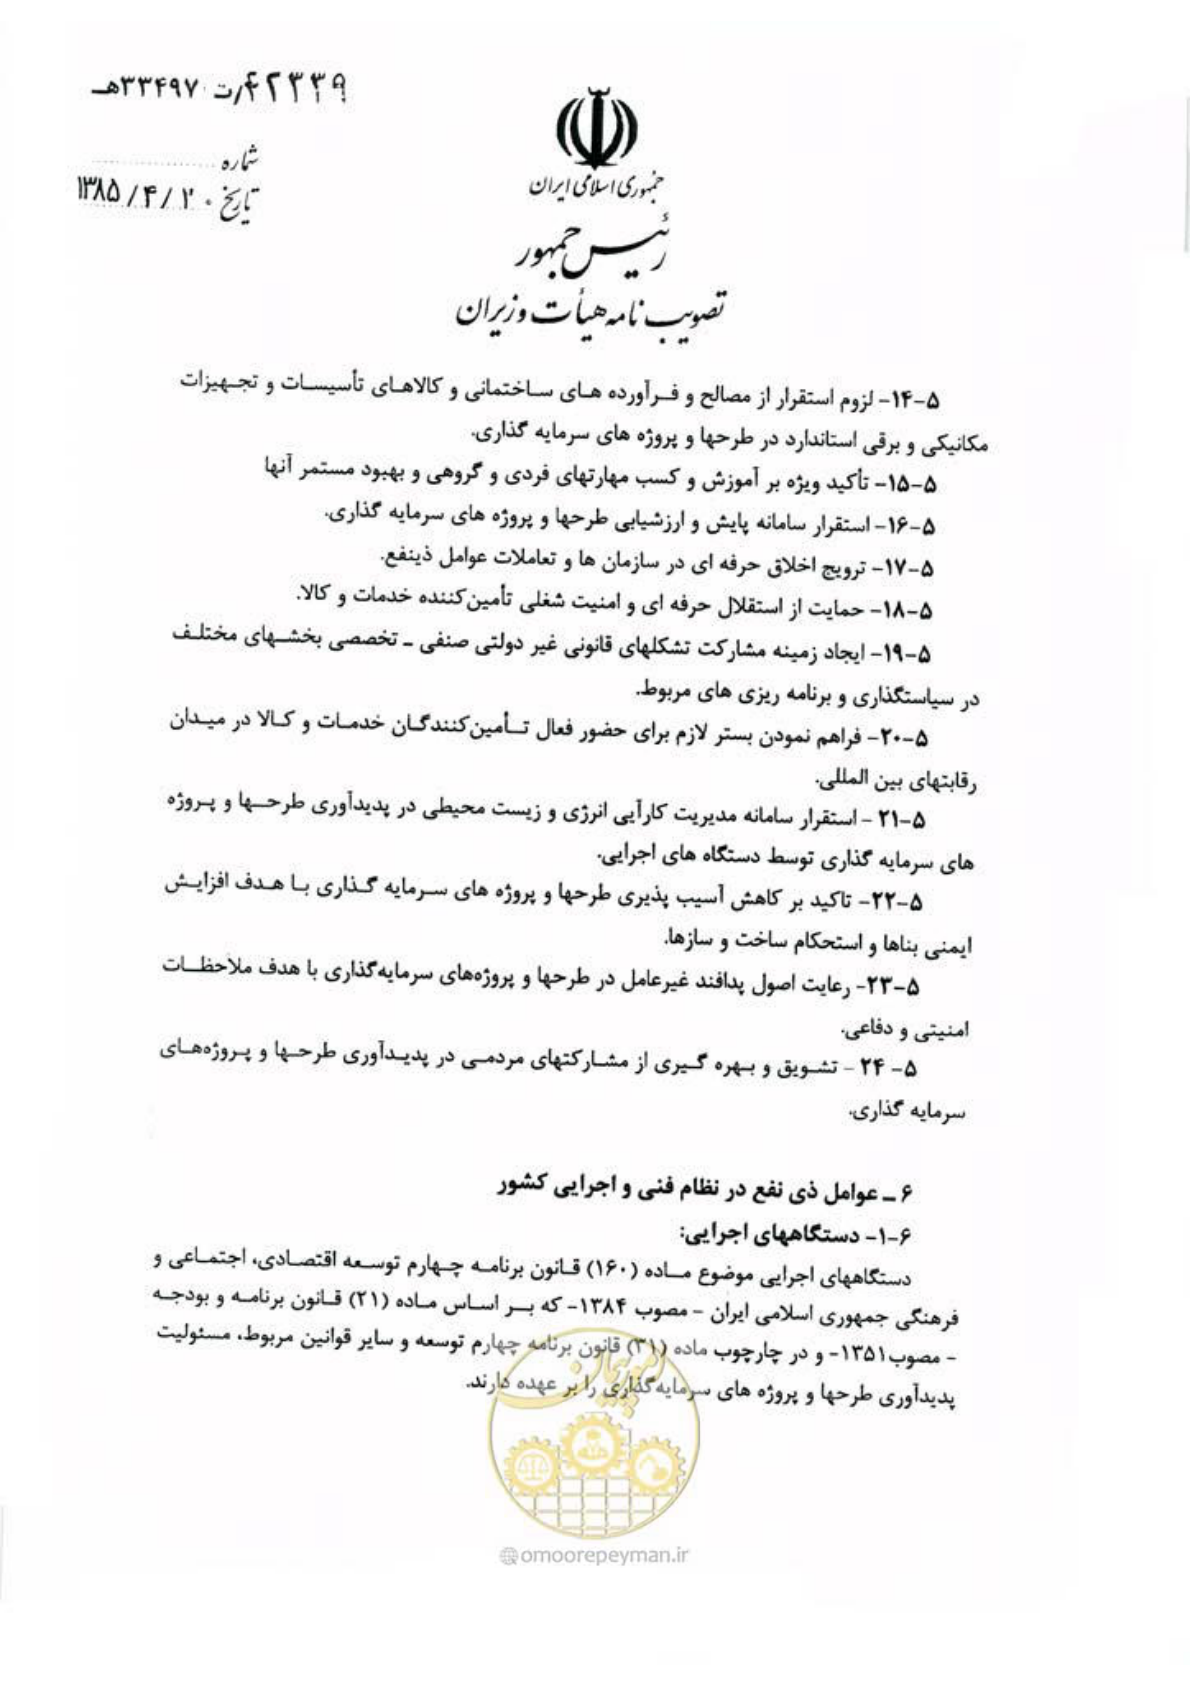 ۴۲۳۳۹/ت ۳۳۴۹۷هـ
شماره
تاریخ ۱۳۸۵/۴/۲۰
جمهوری اسلامی ایران
رئیس جمهور
تصویب نامه هیأت وزیران
۵-۱۴- لزوم استقرار از مصالح و فـرآورده هـای سـاختمانی و کالاهـای تأسیسـات و تجـهیزات
مکانیکی و برقی استاندارد در طرحها و پروژه های سرمایه گذاری.
۵-۱۵- تأکید ویژه بر آموزش و کسب مهارتهای فردی و گروهی و بهبود مستمر آنها
۵-۱۶- استقرار سامانه پایش و ارزشیابی طرحها و پروژه های سرمایه گذاری.
۵-۱۷- ترویج اخلاق حرفه ای در سازمان ها و تعاملات عوامل ذینفع.
۵-۱۸- حمایت از استقلال حرفه ای و امنیت شغلی تأمین‌کننده خدمات و کالا.
۵-۱۹- ایجاد زمینه مشارکت تشکلهای قانونی غیر دولتی صنفی ـ تخصصی بخشـهای مختلـف
در سیاستگذاری و برنامه ریزی های مربوط.
۵-۲۰- فراهم نمودن بستر لازم برای حضور فعال تـأمین‌کنندگـان خدمـات و کـالا در میـدان
رقابتهای بین المللی.
۵-۲۱ - استقرار سامانه مدیریت کارآیی انرژی و زیست محیطی در پدیدآوری طرحـها و پـروژه
های سرمایه گذاری توسط دستگاه های اجرایی.
۵-۲۲- تاکید بر کاهش آسیب پذیری طرحها و پروژه های سـرمایه گـذاری بـا هـدف افزایـش
ایمنی بناها و استحکام ساخت و سازها.
۵-۲۳- رعایت اصول پدافند غیرعامل در طرحها و پروژه‌های سرمایه‌گذاری با هدف ملاحظـات
امنیتی و دفاعی.
۵- ۲۴ - تشـویق و بـهره گـیری از مشـارکتهای مردمـی در پدیـدآوری طرحـها و پـروژه‌هـای
سرمایه گذاری.
۶ ـ عوامل ذی نفع در نظام فنی و اجرایی کشور
۶-۱- دستگاههای اجرایی:
دستگاههای اجرایی موضوع مـاده (۱۶۰) قـانون برنامـه چـهارم توسـعه اقتصـادی، اجتمـاعی و
فرهنگی جمهوری اسلامی ایران - مصوب ۱۳۸۴- که بـر اسـاس مـاده (۲۱) قـانون برنامـه و بودجـه
- مصوب۱۳۵۱- و در چارچوب ماده (۳۱) قانون برنامه چهارم توسعه و سایر قوانین مربوط، مسئولیت
پدیدآوری طرحها و پروژه های سرمایه‌گذاری را بر عهده دارند.
امور پیمان
omoorepeyman.ir